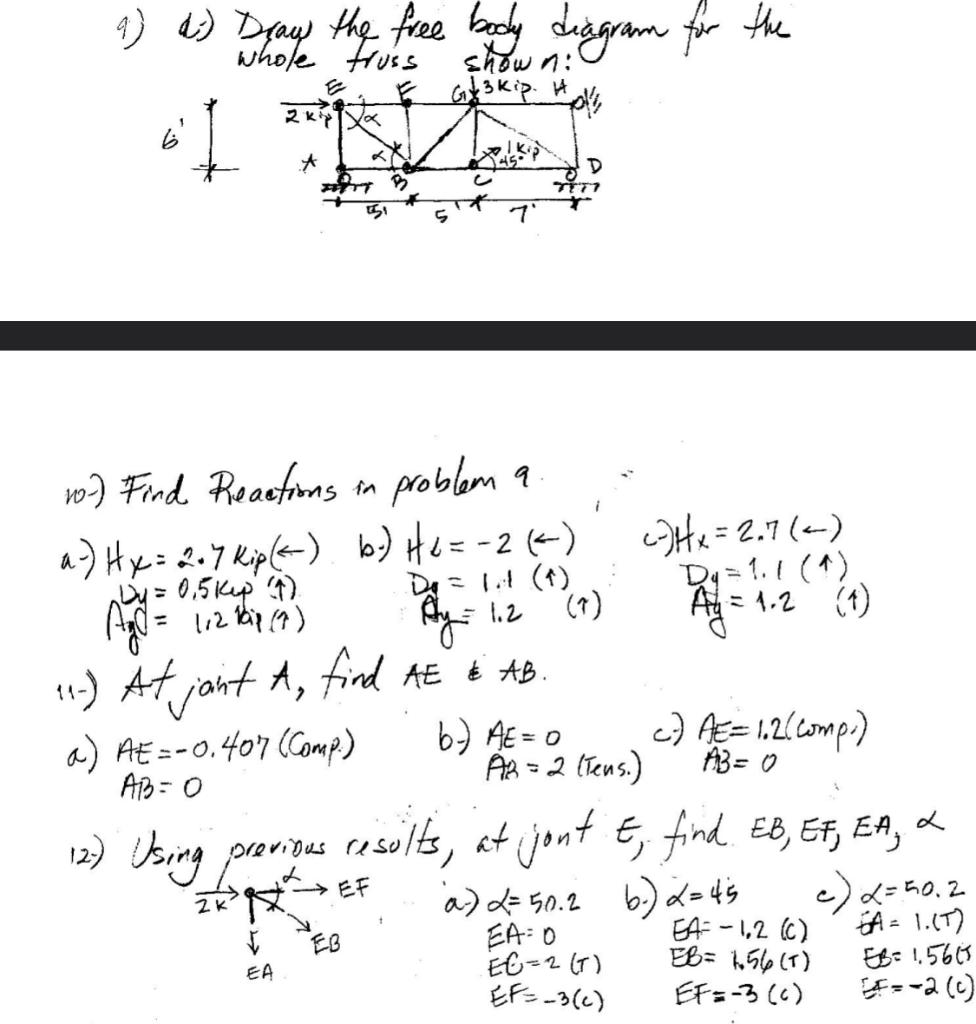 9) d:) Draw the free body diagram for the
whole truss shown:
E F G 3 Kip. H
2 kip α
6'
A α B C 1 Kip 45° D
5' 5' 7'
10-) Find Reactions in problem 9.
a-) Hx = 2.7 Kip (←) b-) Hx = -2 (←) c-) Hx = 2.7 (←)
Dy = 0,5 Kip (↑) Dy = 1.1 (↑) Dy = 1.1 (↑)
Ay = 1,2 kip (↑) Ay = 1.2 (↑) Ay = 1.2 (↑)
11-) At joint A, find AE & AB.
a) AE = -0.407 (Comp.) b-) AE = 0 c-) AE = 1.2 (comp.)
AB = 0 AB = 2 (Tens.) AB = 0
12-) Using previous results, at jont E, find EB, EF, EA, α
2K α EF
EB
EA
a-) α = 50.2 b-) α = 45 c-) α = 50.2
EA = 0 EA = -1,2 (C) EA = 1.(T)
EC = 2 (T) EB = 1.56 (T) EB = 1.56 (T)
EF = -3 (c) EF = -3 (c) EF = -2 (c)